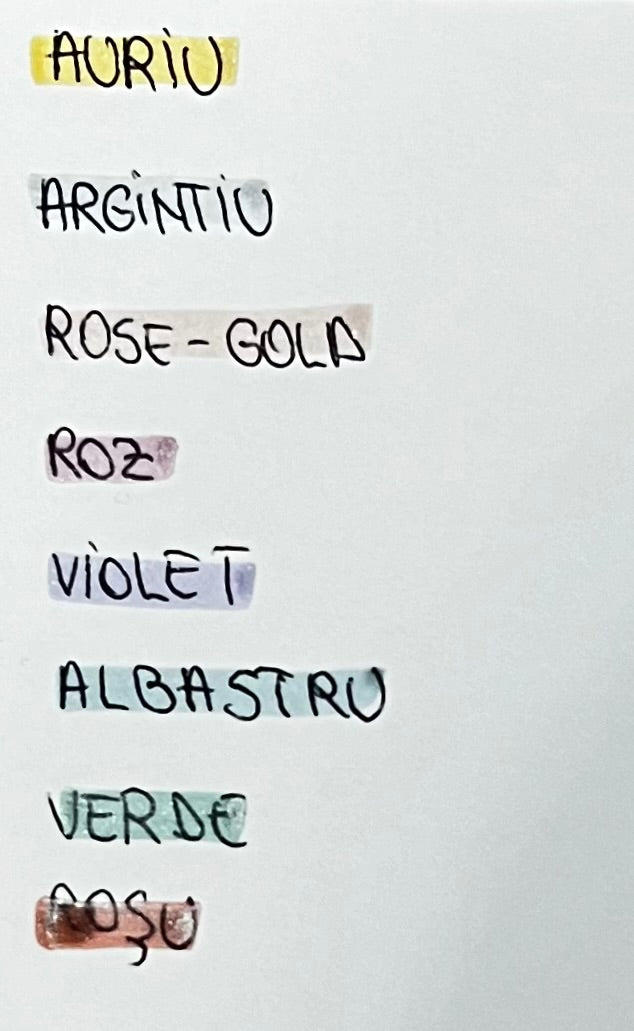 AURIU
ARGINTIU
ROSE-GOLD
ROZ
VIOLET
ALBASTRU
VERDE
ROȘU